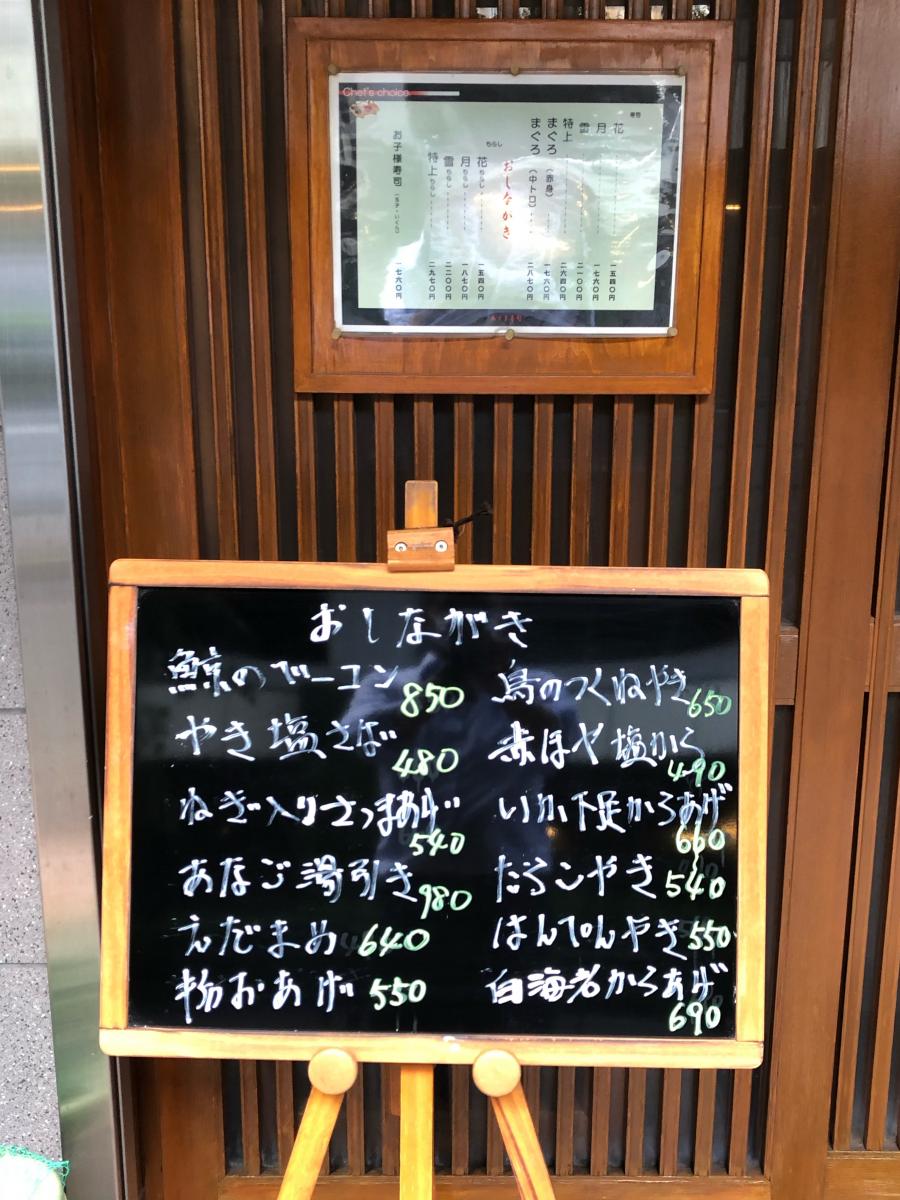 Chef's choice
寿司
花 一五四〇円
月 一七六〇円
雪 二一〇〇円
特上 二六四〇円
まぐろ（赤身） 一七六〇円
まぐろ（中トロ） 二八七〇円
おしながき
ちらし
花ちらし 一五四〇円
月ちらし 一八七〇円
雪ちらし 二二〇〇円
特上ちらし 二九七〇円
お子様寿司（玉子・いくら） 一七六〇円
おしながき
鯨のベーコン 850
やき塩さば 480
ねぎ入りさつまあげ 540
あなご湯引き 980
えだまめ 640
粉おあげ 550
鳥のつくねやき 650
赤ほや塩から 490
いか下足からあげ 660
たらこやき 540
はんぺんやき 550
白海老からあげ 690